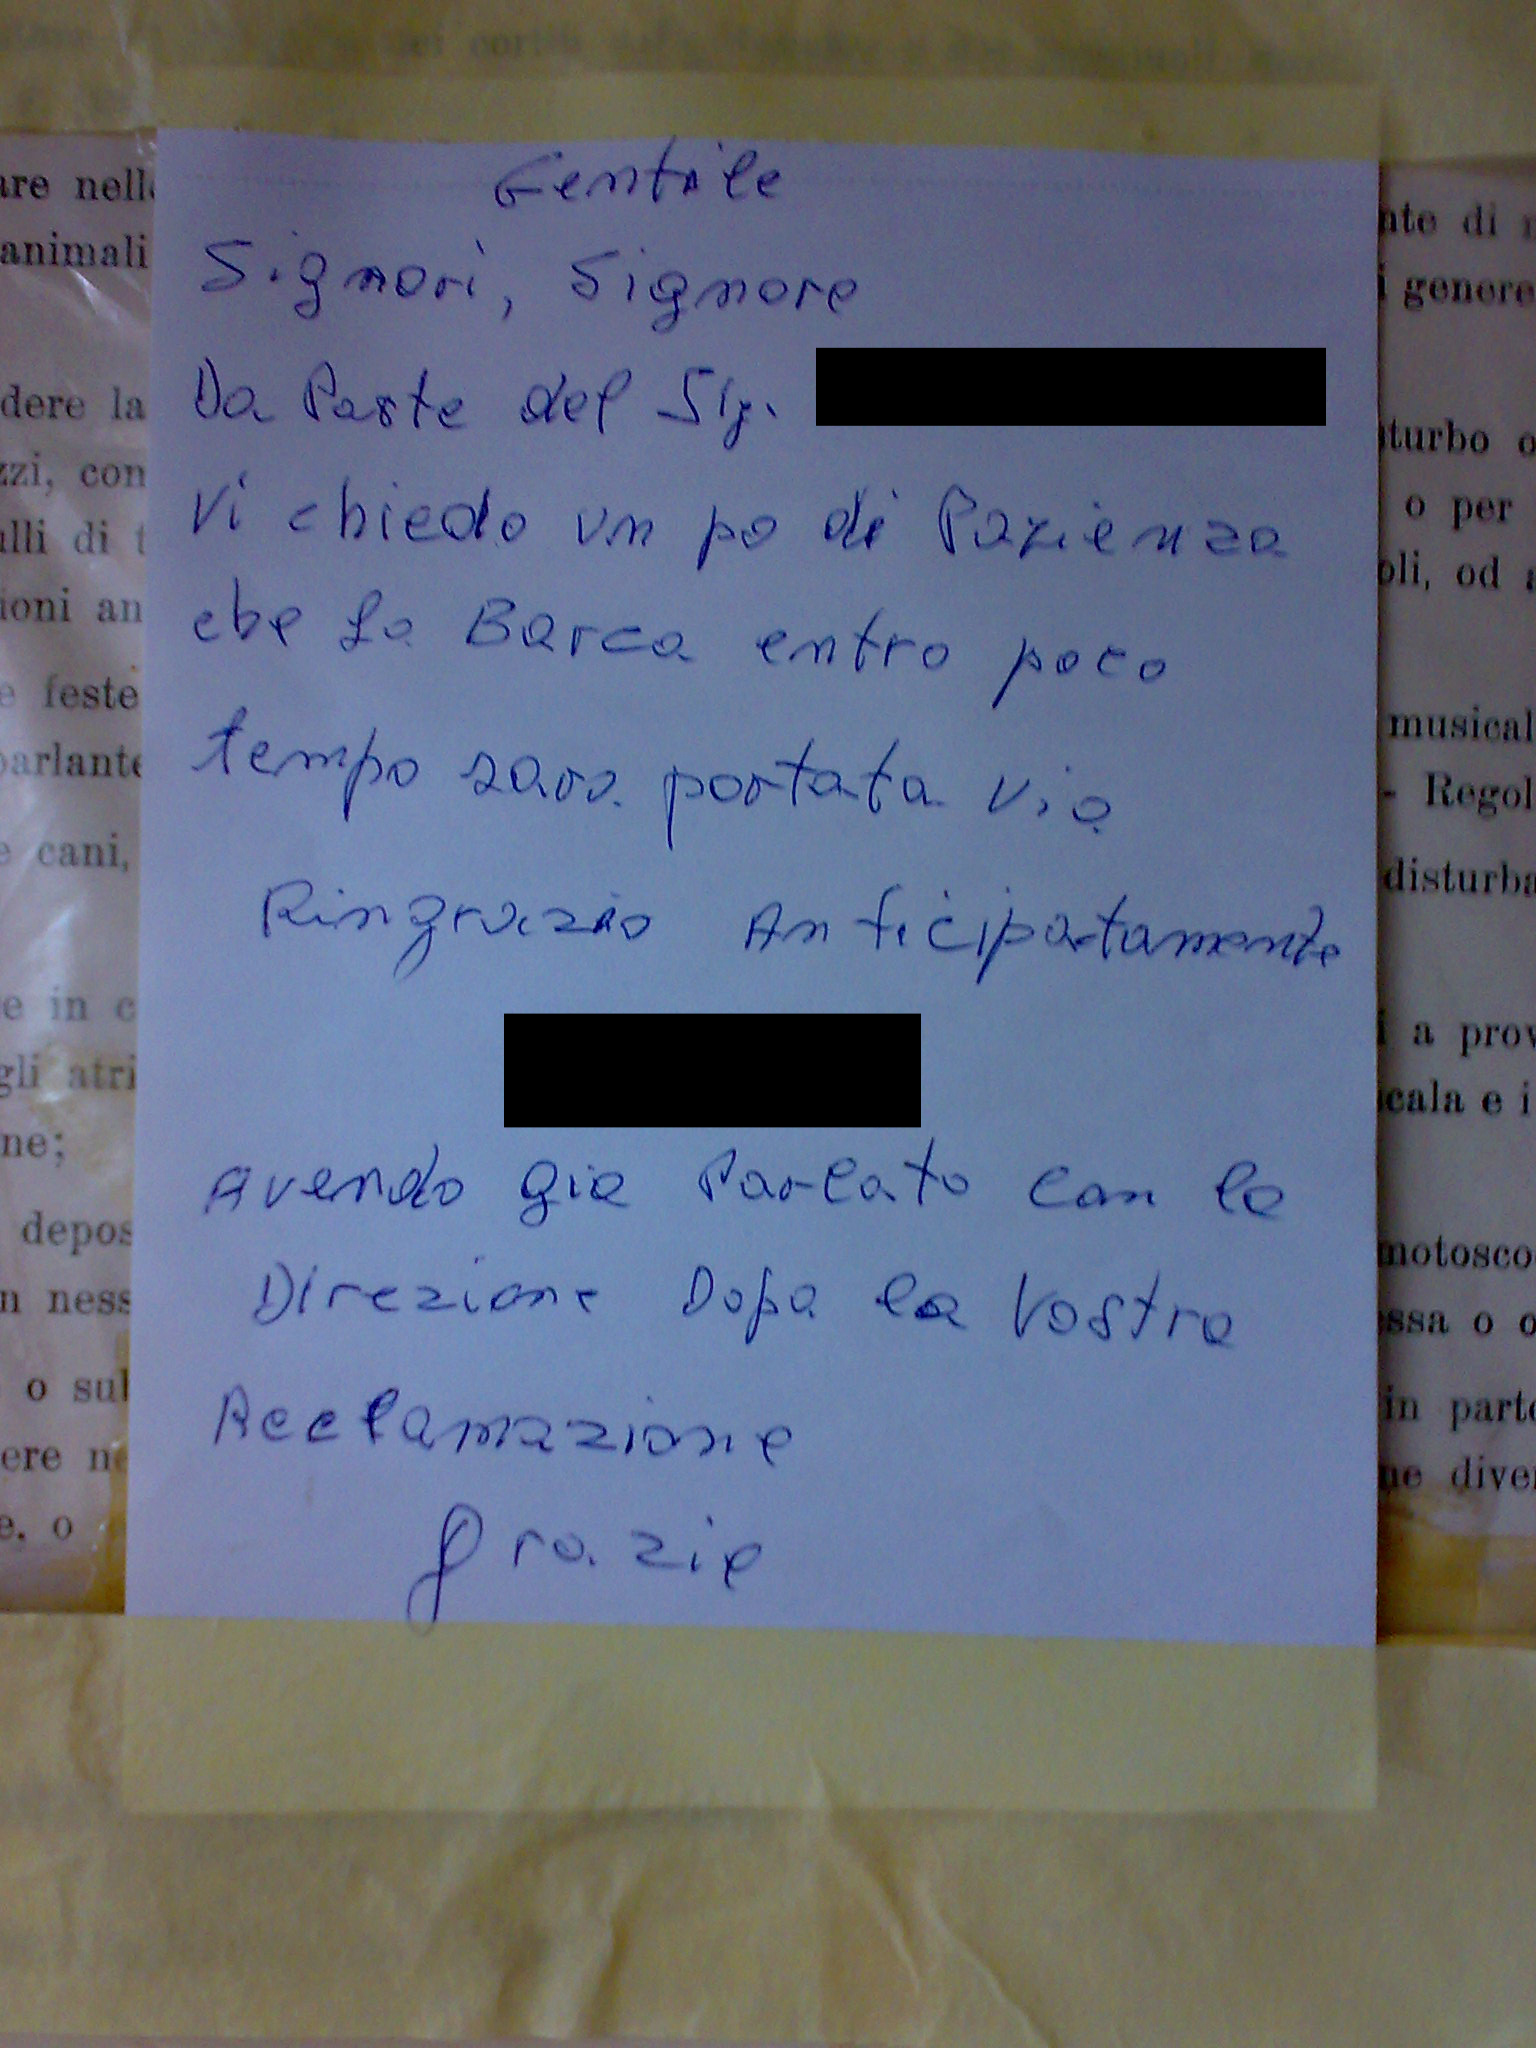 Gentile
Signori, Signore
Da Parte del Sig.
Vi chiedo un po di Pazienza
che la Barca entro poco
tempo sara portata via
Ringrazio Anticipatamente
Avendo gia Parlato con la
Direzione Dopo la Vostra
Reclamazione
grazie
are nelle
animali
dere la
zzi, con
ulli di t
ioni an
e feste
parlante
e cani,
e in c
gli atri
ne;
depos
n ness
o sul
ere ne
e. o
nte di
i genere
turbo o
o per
oli, od a
musical
- Regol
disturba
i a prov
cala e i
motosco
ssa o o
in parte
ne diver